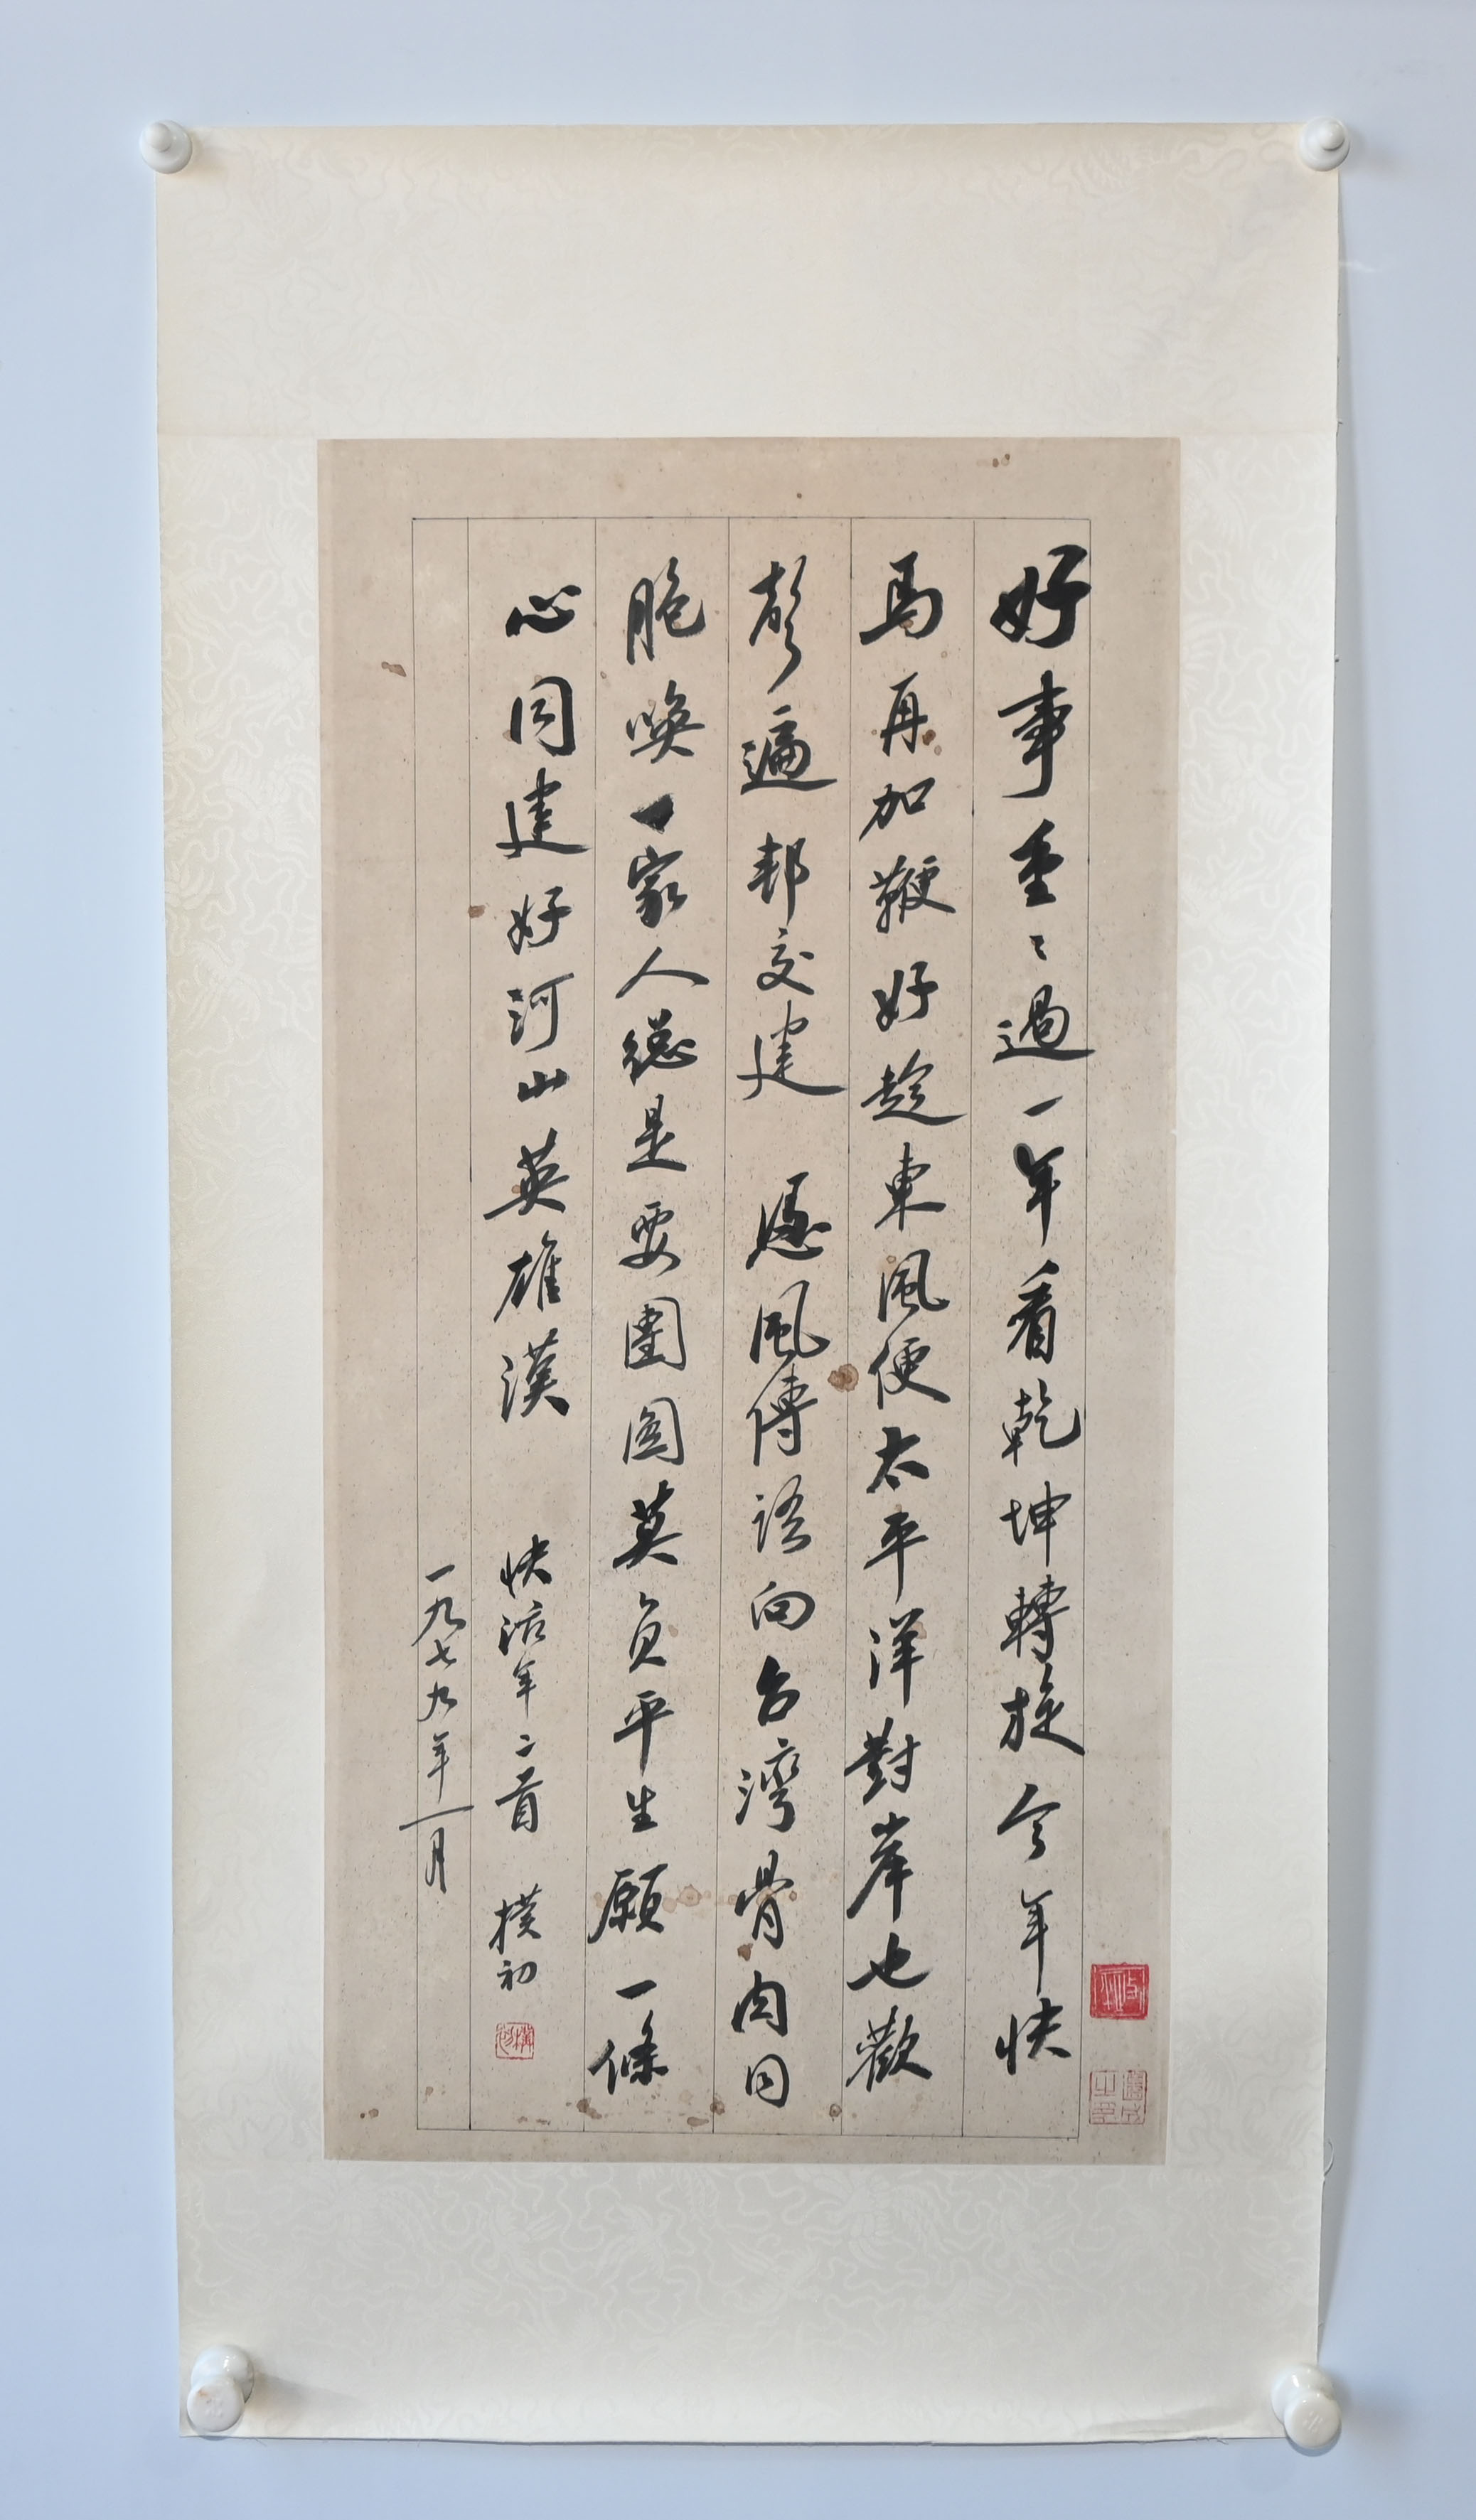 好事重〻過一年看乾坤轉旋今年快
馬再加鞭好趁東風便太平洋對岸也歡
聲遍邦交建 憑風傳語向台灣骨肉同
胞喚一家人總是要團圓莫负平生願一條
心同建好河山英雄漢 快活年二首 樸初
一九七九年一月
樸初